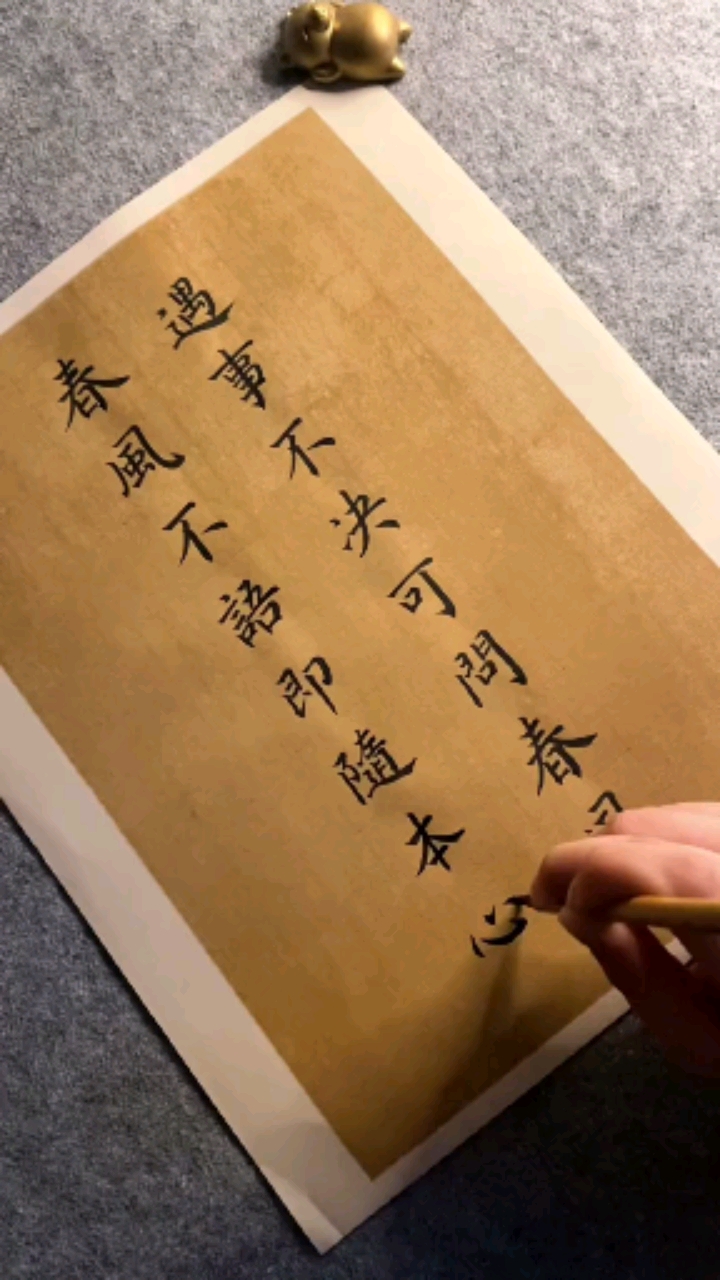 遇事不决可問春
春風不語即隨本心